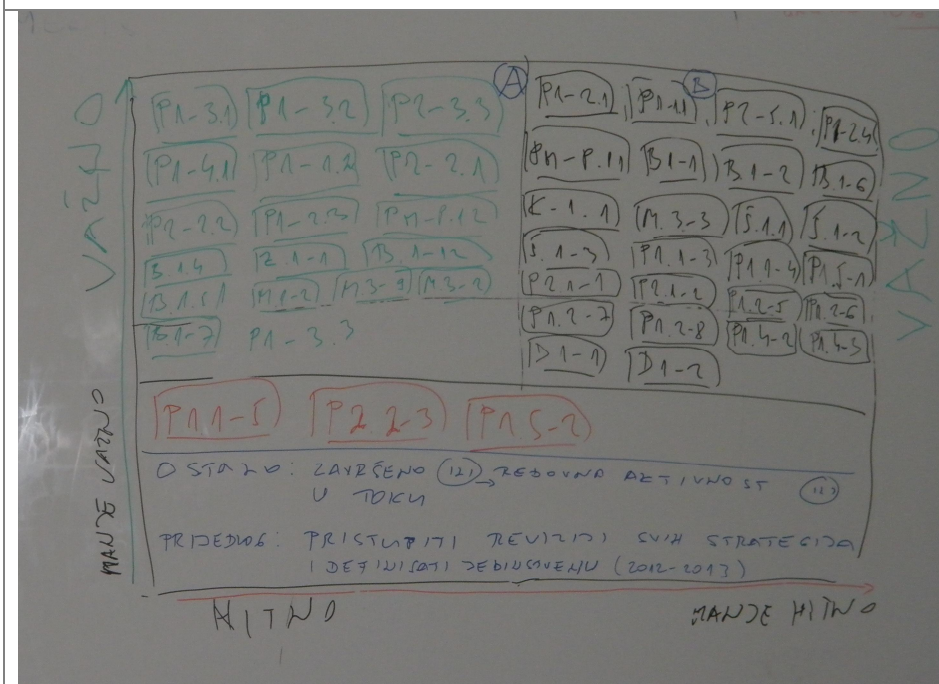 VAŽNO
A
P1-3.1 P1-3.2 P2-3.3
P1-4.1 P1-1.2 P2-2.1
P2-2.2 P1-2.3 PM-P.12
B.1.4 Z.1-1 B.1-12
B.1.5 M.1-2 M.3-2
B1-7 P1-3.3
B
P1-2.1 P1-1.1 P2-5.1 P1-2.4
PM-P.11 B1-1 B.1-2 B.1-6
K-1.1 M.3-3 Š.1.1 Š.1-2
Š.1-3 P1.1-3 P1.1-4 P1.5-1
P2.1-1 P2.1-2 P1.2-5 P1.2-6
P1.2-7 P1.2-8 P1.4-2 P1.4-3
D1-1 D1-2
VAŽNO
MANJE VAŽNO
P1.1-5 P2.2-3 P1.5-2
OSTALO: ZAVRŠENO (121) → REDOVNA AKTIVNOST
U TOKU
PRIJEDLOG: PRISTUPITI REVIZIJI SVIH STRATEGIJA
I DEFINISATI JEDINSTVENU (2012-2013)
HITNO
MANJE HITNO